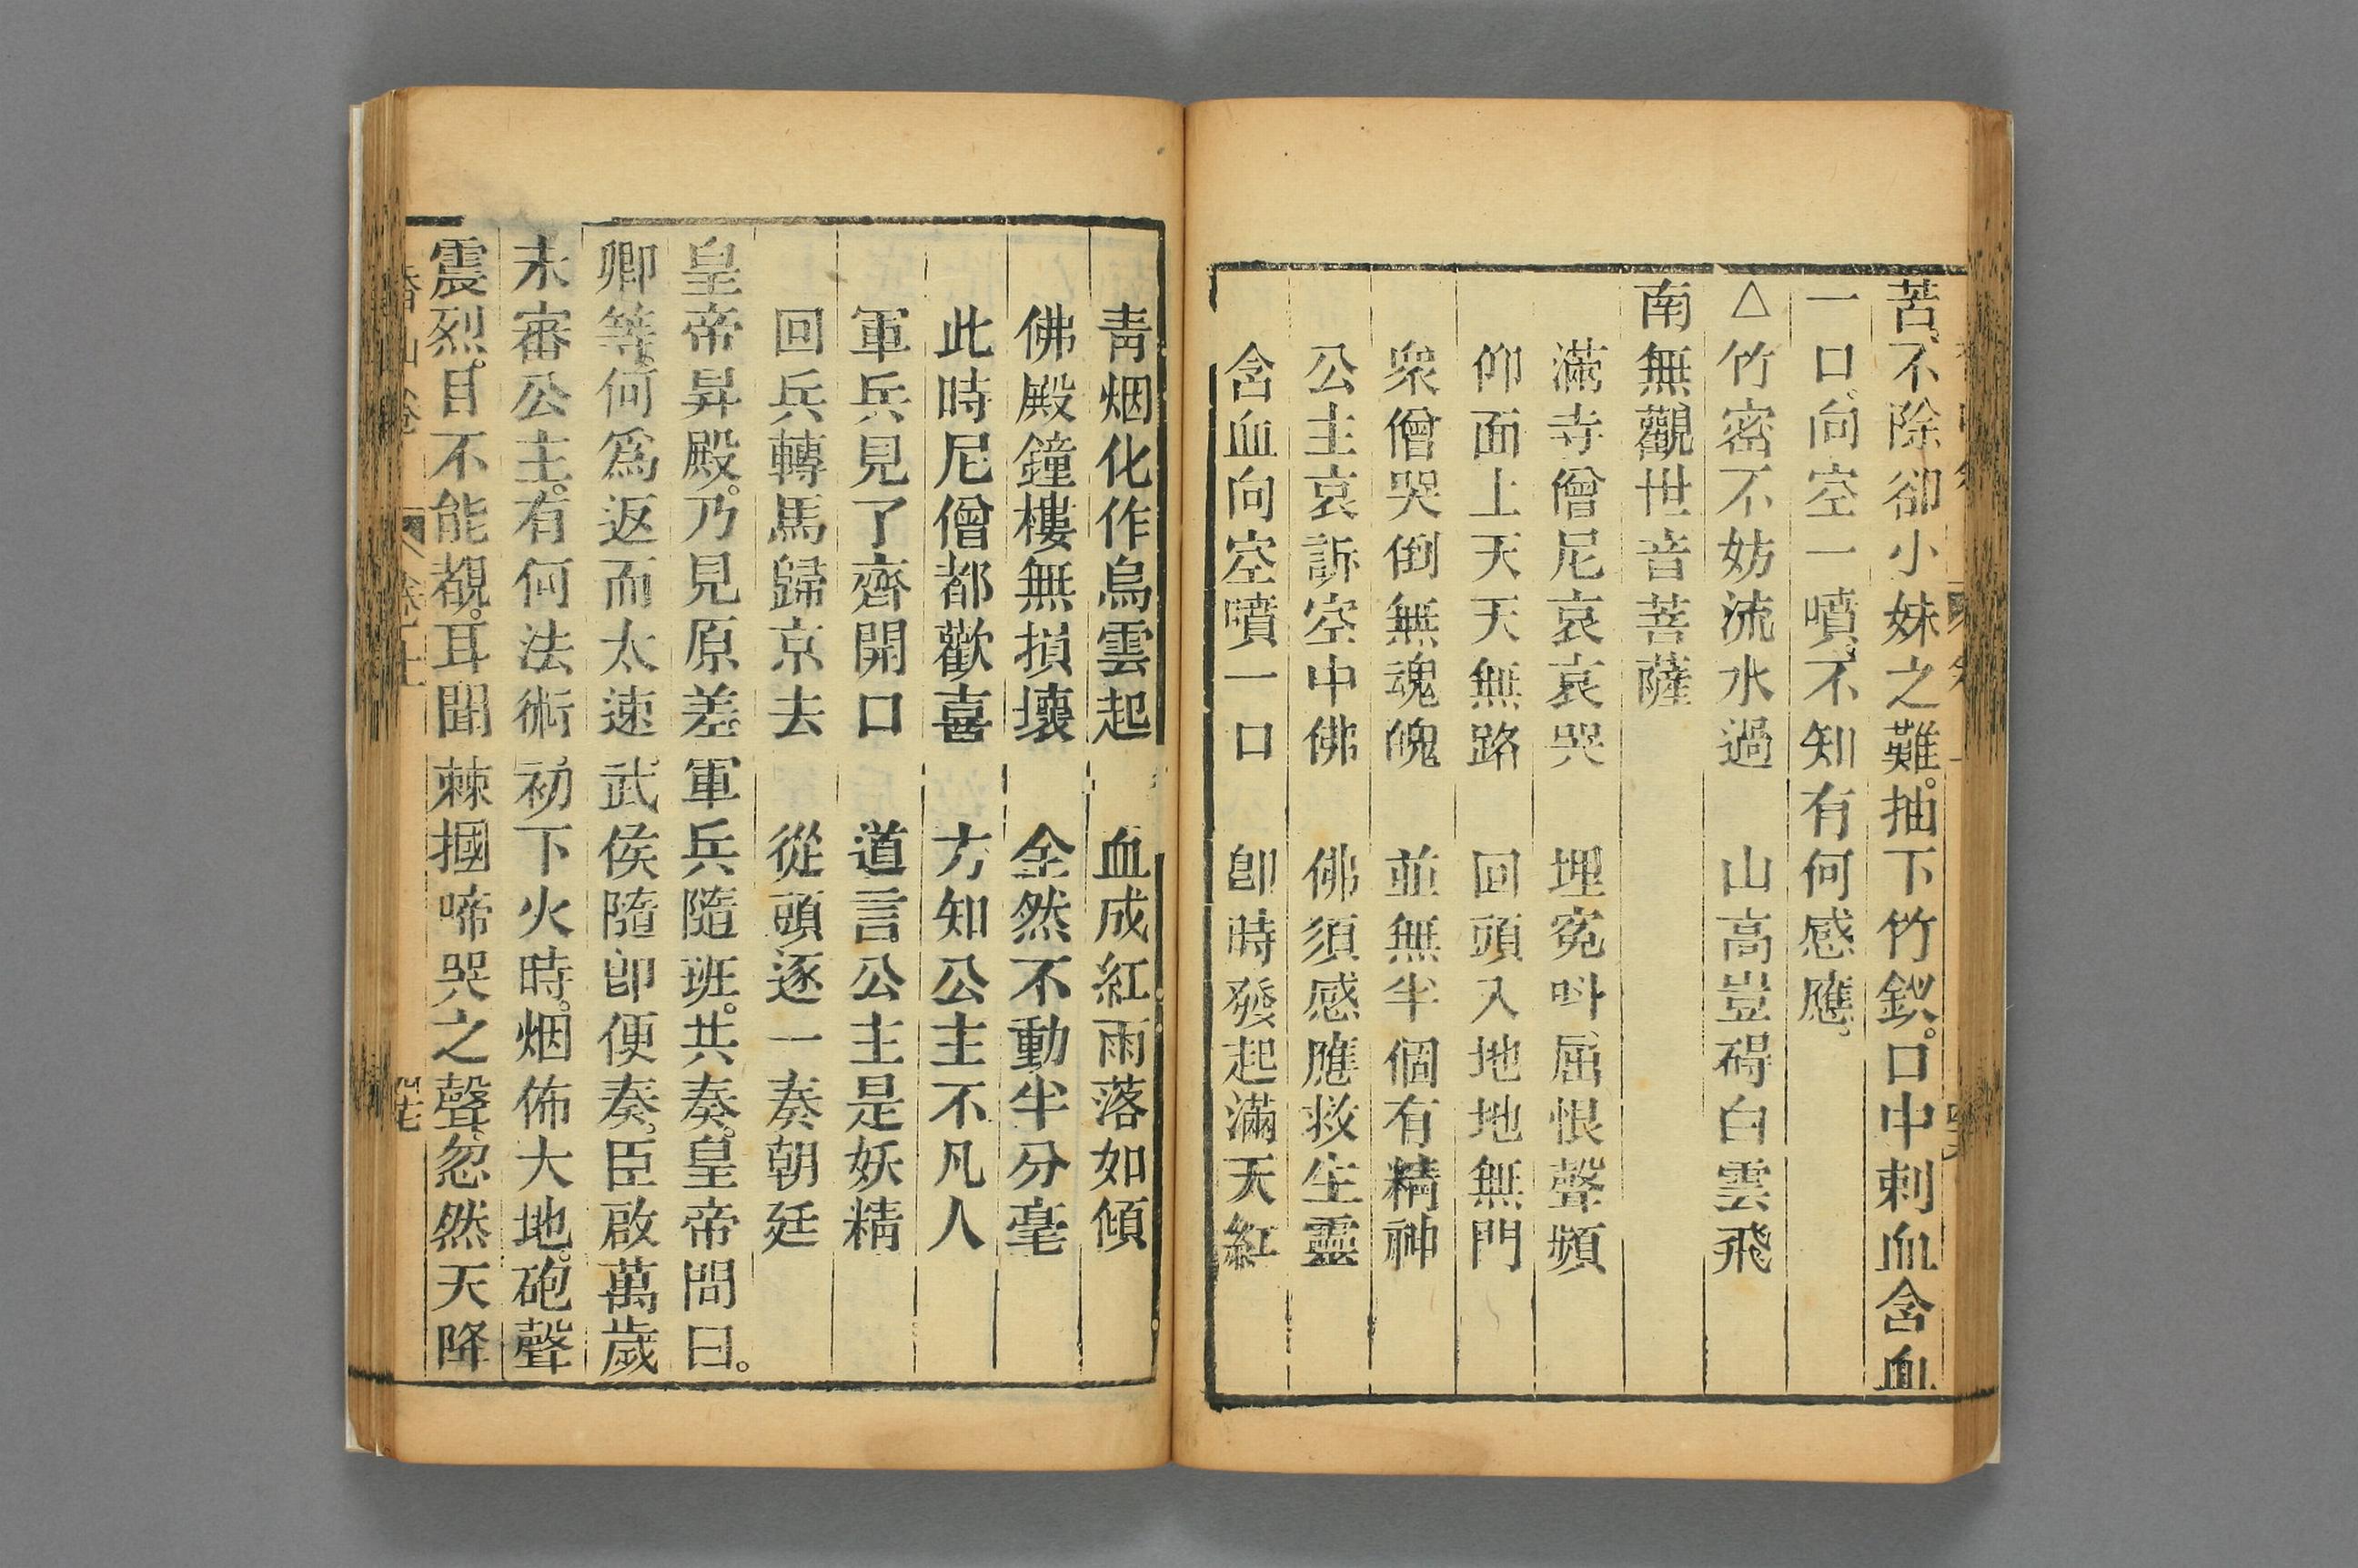 苦、不除卻小妹之難。抽下竹釵。口中刺血含血
一口、向空一噴、不知有何感應。
△竹密不妨流水過　山高豈碍白雲飛
南無觀世音菩薩
滿寺僧尼哀哀哭　埋寃呌屈恨聲頻
仰面上天天無路　回頭入地地無門
衆僧哭倒無魂魄　並無半個有精神
公主哀訴空中佛　佛須感應救生靈
含血向空噴一口　卽時發起滿天紅
靑烟化作烏雲起　血成紅雨落如傾
佛殿鐘樓無損壞　全然不動半分毫
此時尼僧都歡喜　方知公主不凡人
軍兵見了齊開口　道言公主是妖精
回兵轉馬歸京去　從頭逐一奏朝廷
皇帝昇殿。乃見原差軍兵隨班。共奏。皇帝問曰。
卿等。何爲返而太速武侯隨卽便奏。臣啟萬歲
未審公主。有何法術初下火時。烟佈大地。砲聲
震烈。目不能覩。耳聞棘摑啼哭之聲、忽然天降
香山卷